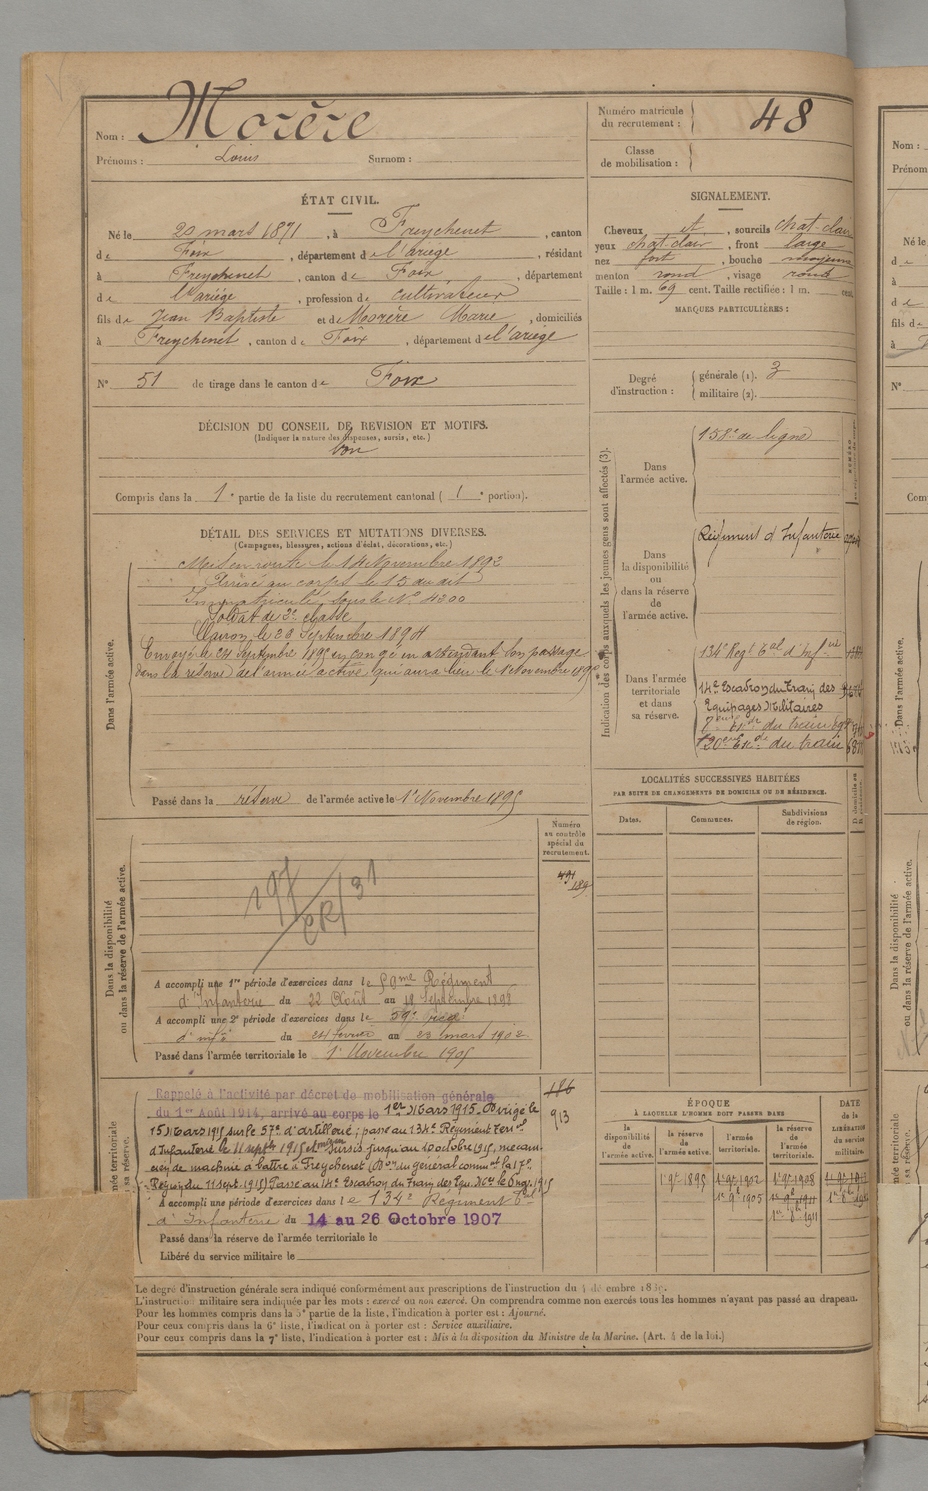 Nom : Morère
Prénoms : Louis Surnom :
Numéro matricule
du recrutement : 48
Classe
de mobilisation :
ÉTAT CIVIL.
Né le 20 mars 1871, à Freychenet, canton
de Foix, département de l'ariège, résidant
à Freychenet, canton de Foix, département
de l'ariège, profession de cultivateur
fils de Jean Baptiste et de Morère Marie, domiciliés
à Freychenet, canton de Foix, département de l'ariège
N° 51 de tirage dans le canton de Foix
SIGNALEMENT.
Cheveux et, sourcils chat-clair
yeux chat-clair, front large
nez fort, bouche moyenne
menton rond, visage rond
Taille : 1 m. 69 cent. Taille rectifiée : 1 m. cent.
MARQUES PARTICULIÈRES :
Degré
d'instruction :
générale (1). 3
militaire (2).
DÉCISION DU CONSEIL DE REVISION ET MOTIFS.
(Indiquer la nature des dispenses, sursis, etc.)
bon
Compris dans la 1e partie de la liste du recrutement cantonal ( 1e portion).
DÉTAIL DES SERVICES ET MUTATIONS DIVERSES.
(Campagnes, blessures, actions d'éclat, décorations, etc.)
Dans l'armée active.
Mis en route le 14 Novembre 1892
Arrivé au corps le 15 du dit
Immatriculé sous le N° 4200
Soldat de 2e classe
Clairon le 23 Septembre 1894
Envoyé le 24 Septembre 1895 en congé en attendant son passage
dans la réserve de l'armée active qui aura lieu le 1 Novembre 1895
Passé dans la réserve de l'armée active le 1r Novembre 1895
Indication des corps auxquels les jeunes gens sont affectés (3).
Dans
l'armée active.
158e de ligne
Dans
la disponibilité
ou
dans la réserve de
l'armée active.
Régiment d'Infanterie
Dans l'armée
territoriale
et dans
sa réserve.
134e Regt Tal d'Infrie
14e Escadron du Train des
Equipages Militaires
20eme Eson du train
LOCALITÉS SUCCESSIVES HABITÉES
PAR SUITE DE CHANGEMENTS DE DOMICILE OU DE RÉSIDENCE.
Dates. Communes. Subdivisions
de région.
Dans la disponibilité
ou dans la réserve de l'armée active.
Numéro
au contrôle
spécial du
recrutement.
197
CR/31
A accompli une 1re période d'exercices dans le 59me Régiment
d'Infanterie du 22 Août au 18 Septembre 1898
A accompli une 2e période d'exercices dans le 59e
d'infie du 24 fevrier au 23 mars 1902
Passé dans l'armée territoriale le 1r Novembre 1905
186
913
Rappelé à l'activité par décret de mobilisation générale
du 1er Août 1914, arrivé au corps le 1er Mars 1915. Dirigé le
15 Mars 1915 sur le 57e d'artillerie ; passé au 134e Régiment Terrial
d'Infanterie le 11 septbre 1915 Sursis jusqu'au 10 octobre 1915, mecani-
cien de machine à battre à Freychenet (Bon du général commt la 17e
Région du 11 sept. 1915) Passé au 14e Escadron du Train des Equ. Mres le 6 nov. 1915
A accompli une période d'exercices dans le 134e Régiment Tal
d'Infanterie du 14 au 26 Octobre 1907
Passé dans la réserve de l'armée territoriale le
Libéré du service militaire le
ÉPOQUE
À LAQUELLE L'HOMME DOIT PASSER DANS
la
disponibilité
de
l'armée active.
la réserve
de
l'armée active.
l'armée
territoriale.
la réserve
de
l'armée
territoriale.
DATE
de la
LIBÉRATION
du service
militaire.
1r 9bre 1895 1r 9bre 1902 1r 9bre 1908
1r 9bre 1905 1r 9bre 1911
1er 8bre 1911
Le degré d'instruction générale sera indiqué conformément aux prescriptions de l'instruction du
L'instruction militaire sera indiquée par les mots : exercé ou non exercé. On comprendra comme non exercés tous les hommes n'ayant pas passé au drapeau.
Pour les hommes compris dans la 5e partie de la liste, l'indication à porter est : Ajourné.
Pour ceux compris dans la 6e liste, l'indication à porter est : Service auxiliaire.
Pour ceux compris dans la 7e liste, l'indication à porter est : Mis à la disposition du Ministre de la Marine. (Art. 4 de la loi.)